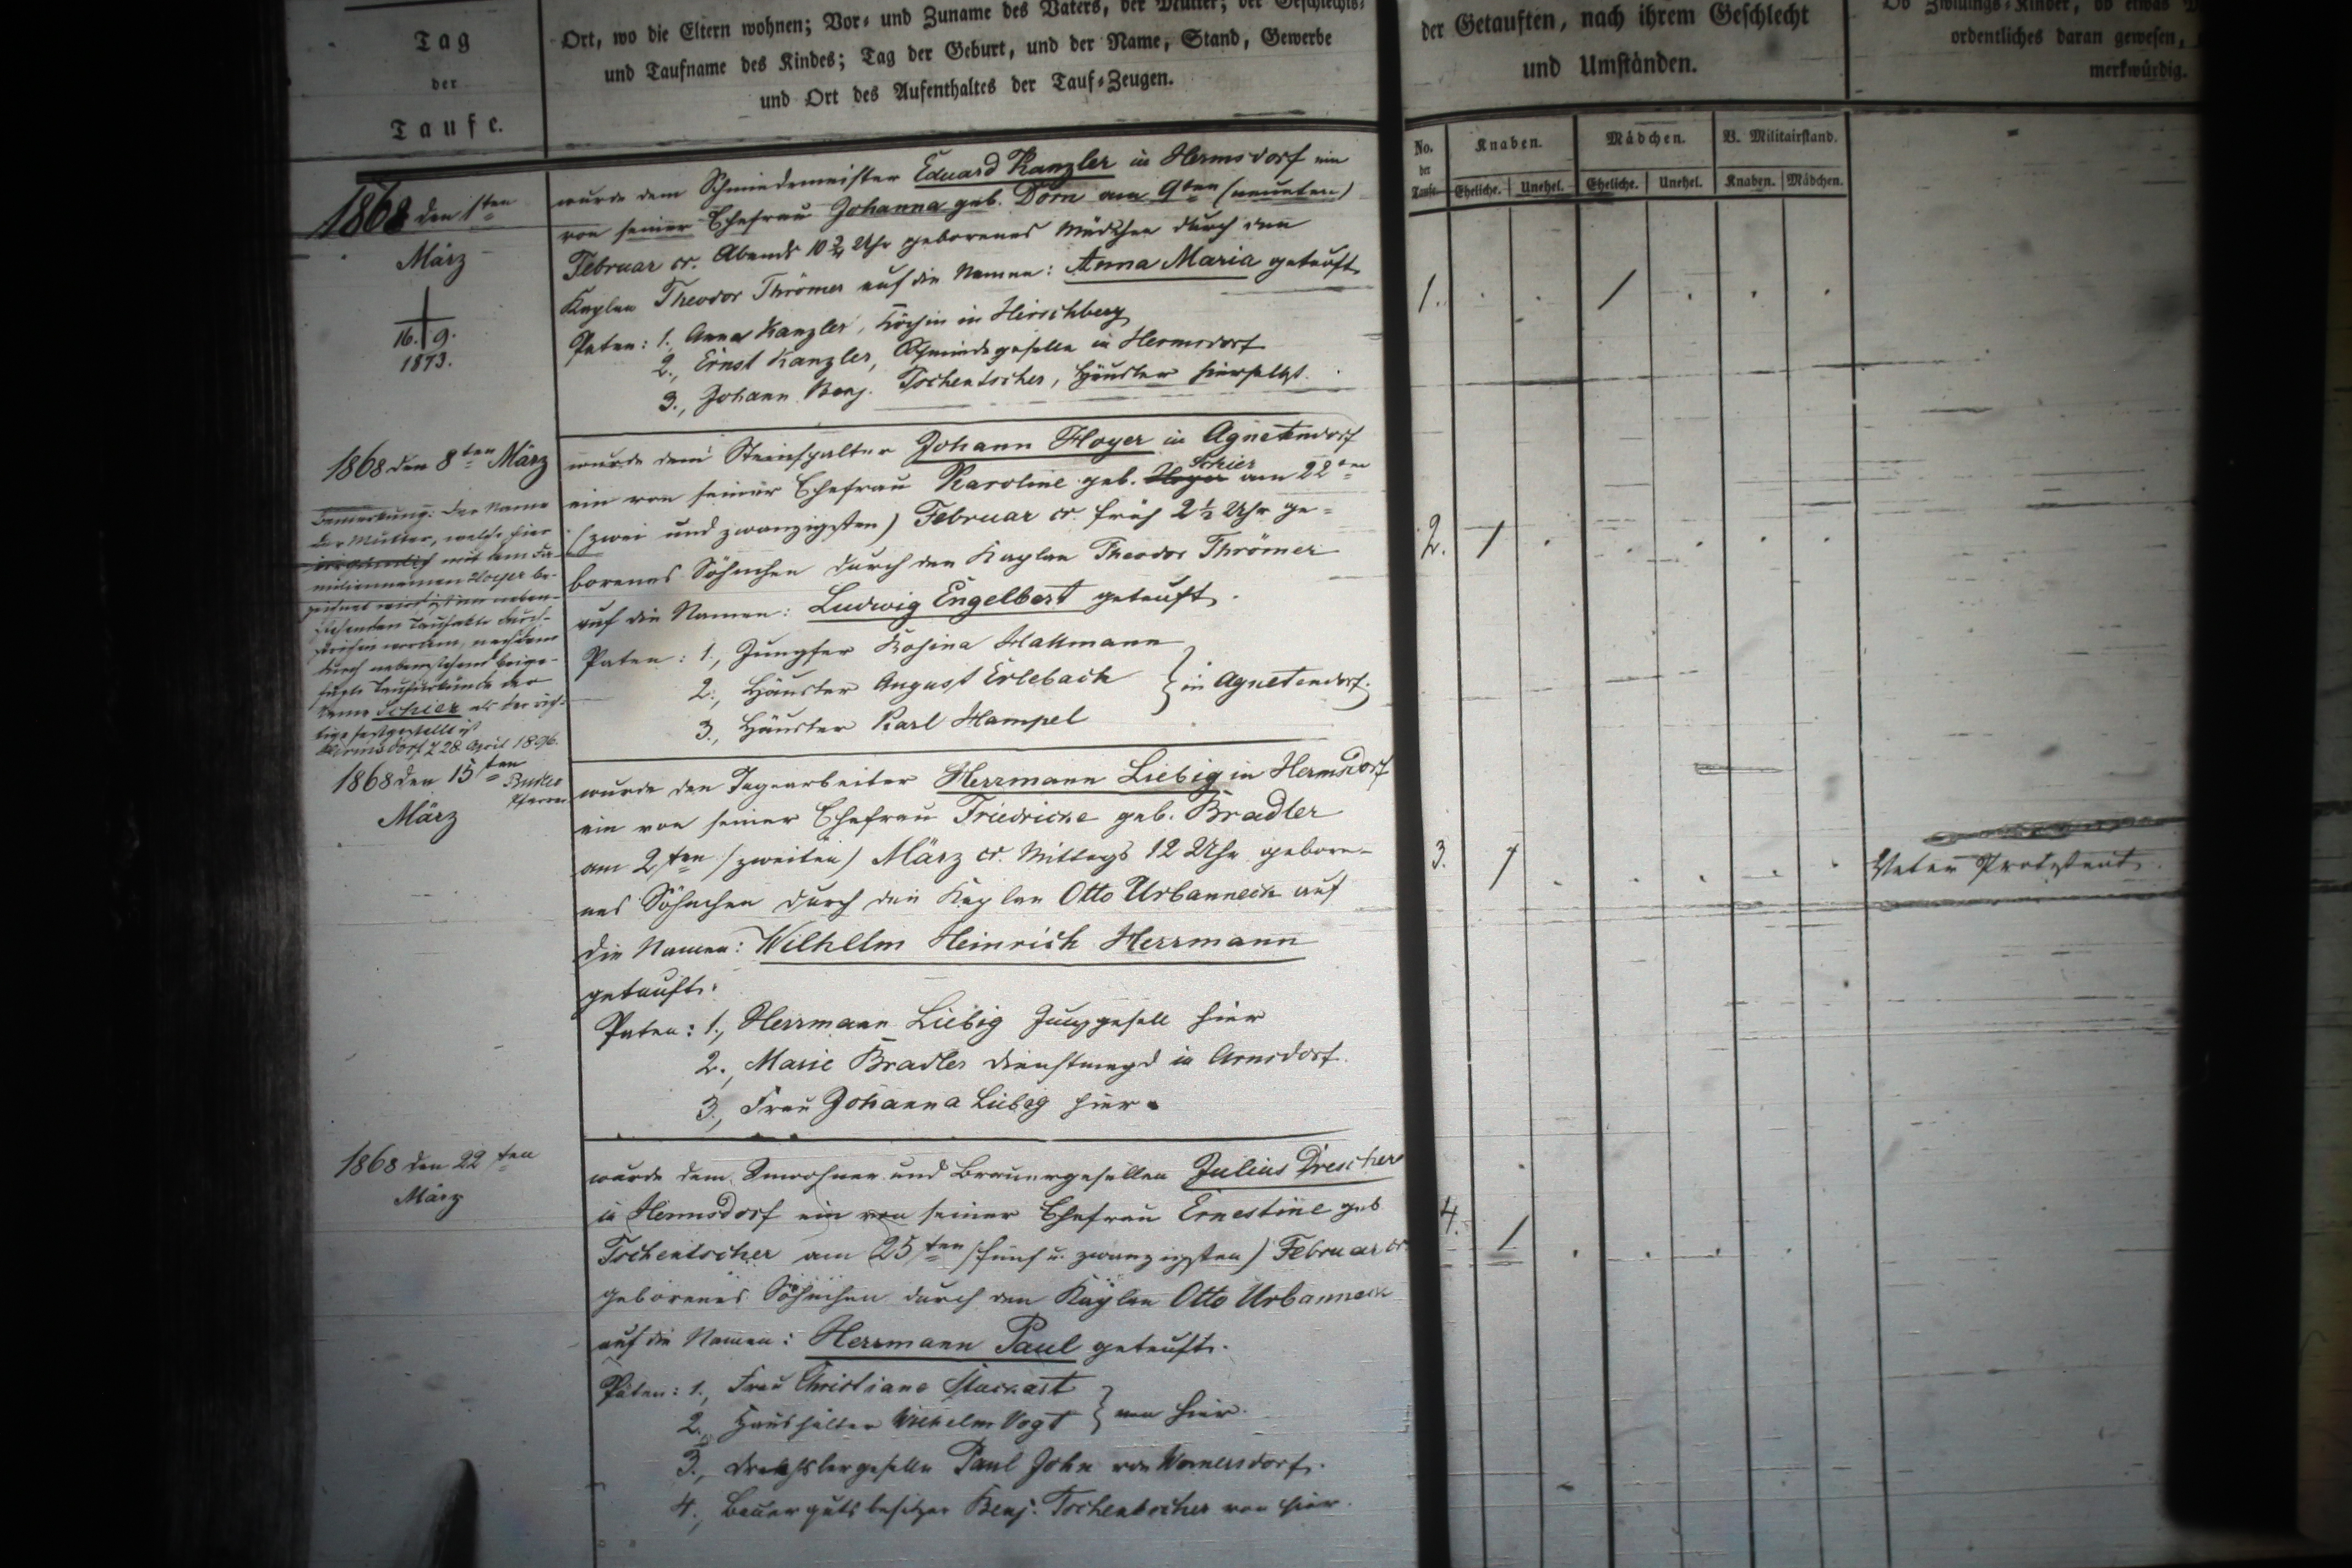 Tag
der
Taufe.
Ort, wo die Eltern wohnen; Vor- und Zuname des Vaters, der Mutter; der Geschlechts-
und Taufname des Kindes; Tag der Geburt, und der Name, Stand, Gewerbe
und Ort des Aufenthaltes der Tauf-Zeugen.
der Getauften, nach ihrem Geschlecht
und Umständen.
Ob Zwillings-Kinder, ob etwas
ordentliches daran gewesen,
merkwürdig.
No. der Taufe.
Knaben.
Mädchen.
V. Militairstand.
Eheliche. Unehel. Eheliche. Unehel. Knaben. Mädchen.
1868 den 1ten
März
16. 9.
1873.
wurde dem Schmiedemeister Eduard Kanzler in Hermsdorf ein
von seiner Ehefrau Johanna geb. Dorn am 9ten (neunten)
Februar cr. Abends 10 3/4 Uhr geborenes Mädchen durch den
Kaplan Theodor Thrömer auf die Namen: Anna Maria getauft.
Paten: 1., Anna Kanzler, Köchin in Hirschberg
2., Ernst Kanzler, Schmiedegeselle in Hermsdorf
3., Johann Benj. Tschentscher, Häusler hierselbst.
1.
1868 den 8ten März
Bemerkung: Der Name
der Mutter, welche hier
irrthümlich mit dem Fa-
miliennamen Hoyer be-
zeichnet wird ist im neben-
stehenden Taufakte durch-
strichen worden, nachdem
durch nebenstehend beige-
fügte Taufurkunde der
Name Schier als der rich-
tige festgestellt ist
Hermsdorf, 28 April 1896.
Pfarrer
wurde dem Steinspalter Johann Hoyer in Agnetendorf
ein von seiner Ehefrau Karoline geb. Hoyer Schier am 22ten
(zwei und zwanzigsten) Februar cr. früh 2 1/2 Uhr ge-
borenes Söhnchen durch den Kaplan Theodor Thrömer
auf die Namen: Ludwig Engelbert getauft.
Paten: 1., Jungfer Rosina Hallmann
2., Häusler August Erlebach } in Agnetendorf.
3., Häusler Karl Hampel
2.
1868 den 15ten
März
wurde den Tagearbeiter Herrmann Liebig in Hermsdorf
ein von seiner Ehefrau Friedricke geb. Bradler
am 2ten (zweiten) März cr. Mittags 12 Uhr gebore-
nes Söhnchen durch den Kaplan Otto Urbanneck auf
die Namen: Wilhelm Heinrich Herrmann
getauft.
Paten: 1., Herrmann Liebig Junggesell hier
2., Marie Bradler Dienstmagd in Arnsdorf.
3., Frau Johanna Liebig hier.
3.
Vater Protestant.
1868 den 22ten
März
wurde dem Inwohner und Brauergesellen Julius Drescher
in Hermsdorf ein von seiner Ehefrau Ernestine geb
Tschentscher am 25ten (fünf u. zwanzigsten) Februar cr.
geborenes Söhnchen durch den Kaplan Otto Urbanneck
auf die Namen: Herrmann Paul getauft.
Paten: 1., Frau Christiane
2., Haushälter Wilhelm Vogt } von hier.
3., Drechslergeselle Paul John von
4., Bauergutsbesitzer Benj. Tschentscher von hier.
4.